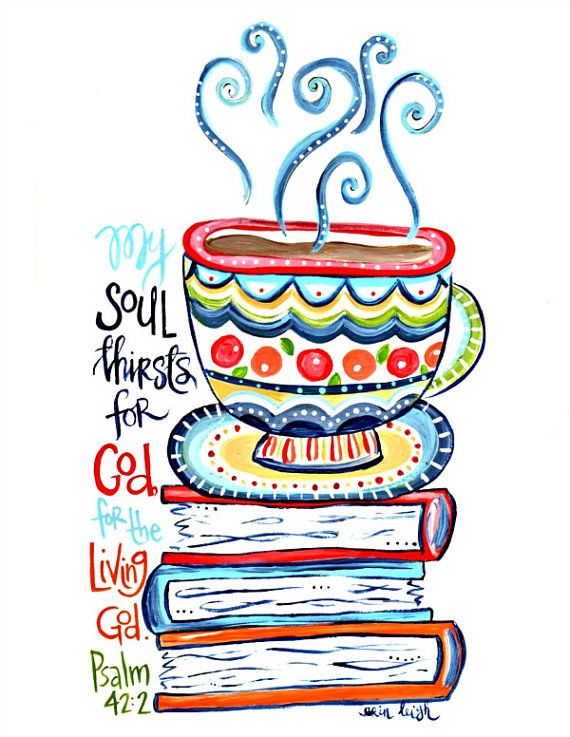 my
SOUL
thirsts
for
God,
for the
Living
God.
Psalm
42:2
erin leigh